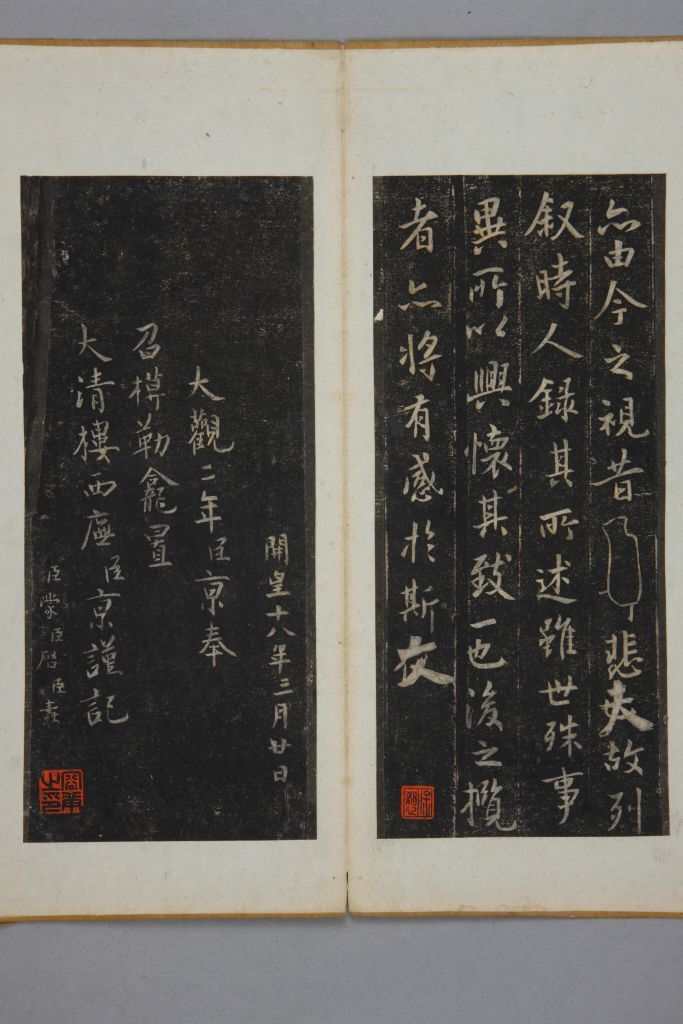 亦由今之視昔悲夫故列
叙時人錄其所述雖世殊事
異所以興懷其致一也後之攬
者亦將有感於斯文
開皇十八年三月廿日
大觀二年臣京奉
召模勒龕置
大清樓西廡臣京謹記
臣蒙臣啓臣